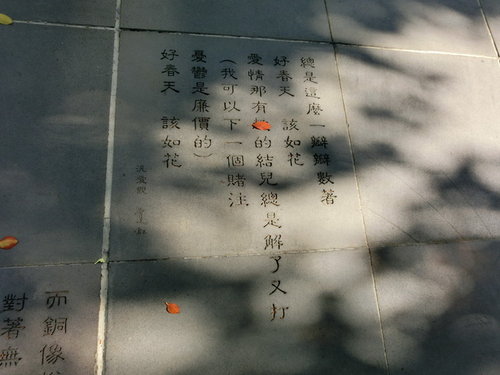 總是這麼一瓣瓣數著
好春天 該如花
愛情那有的結兒總是解了又打
(我可以下一個賭注
憂鬱是廉價的)
好春天 該如花
而銅像
對著無